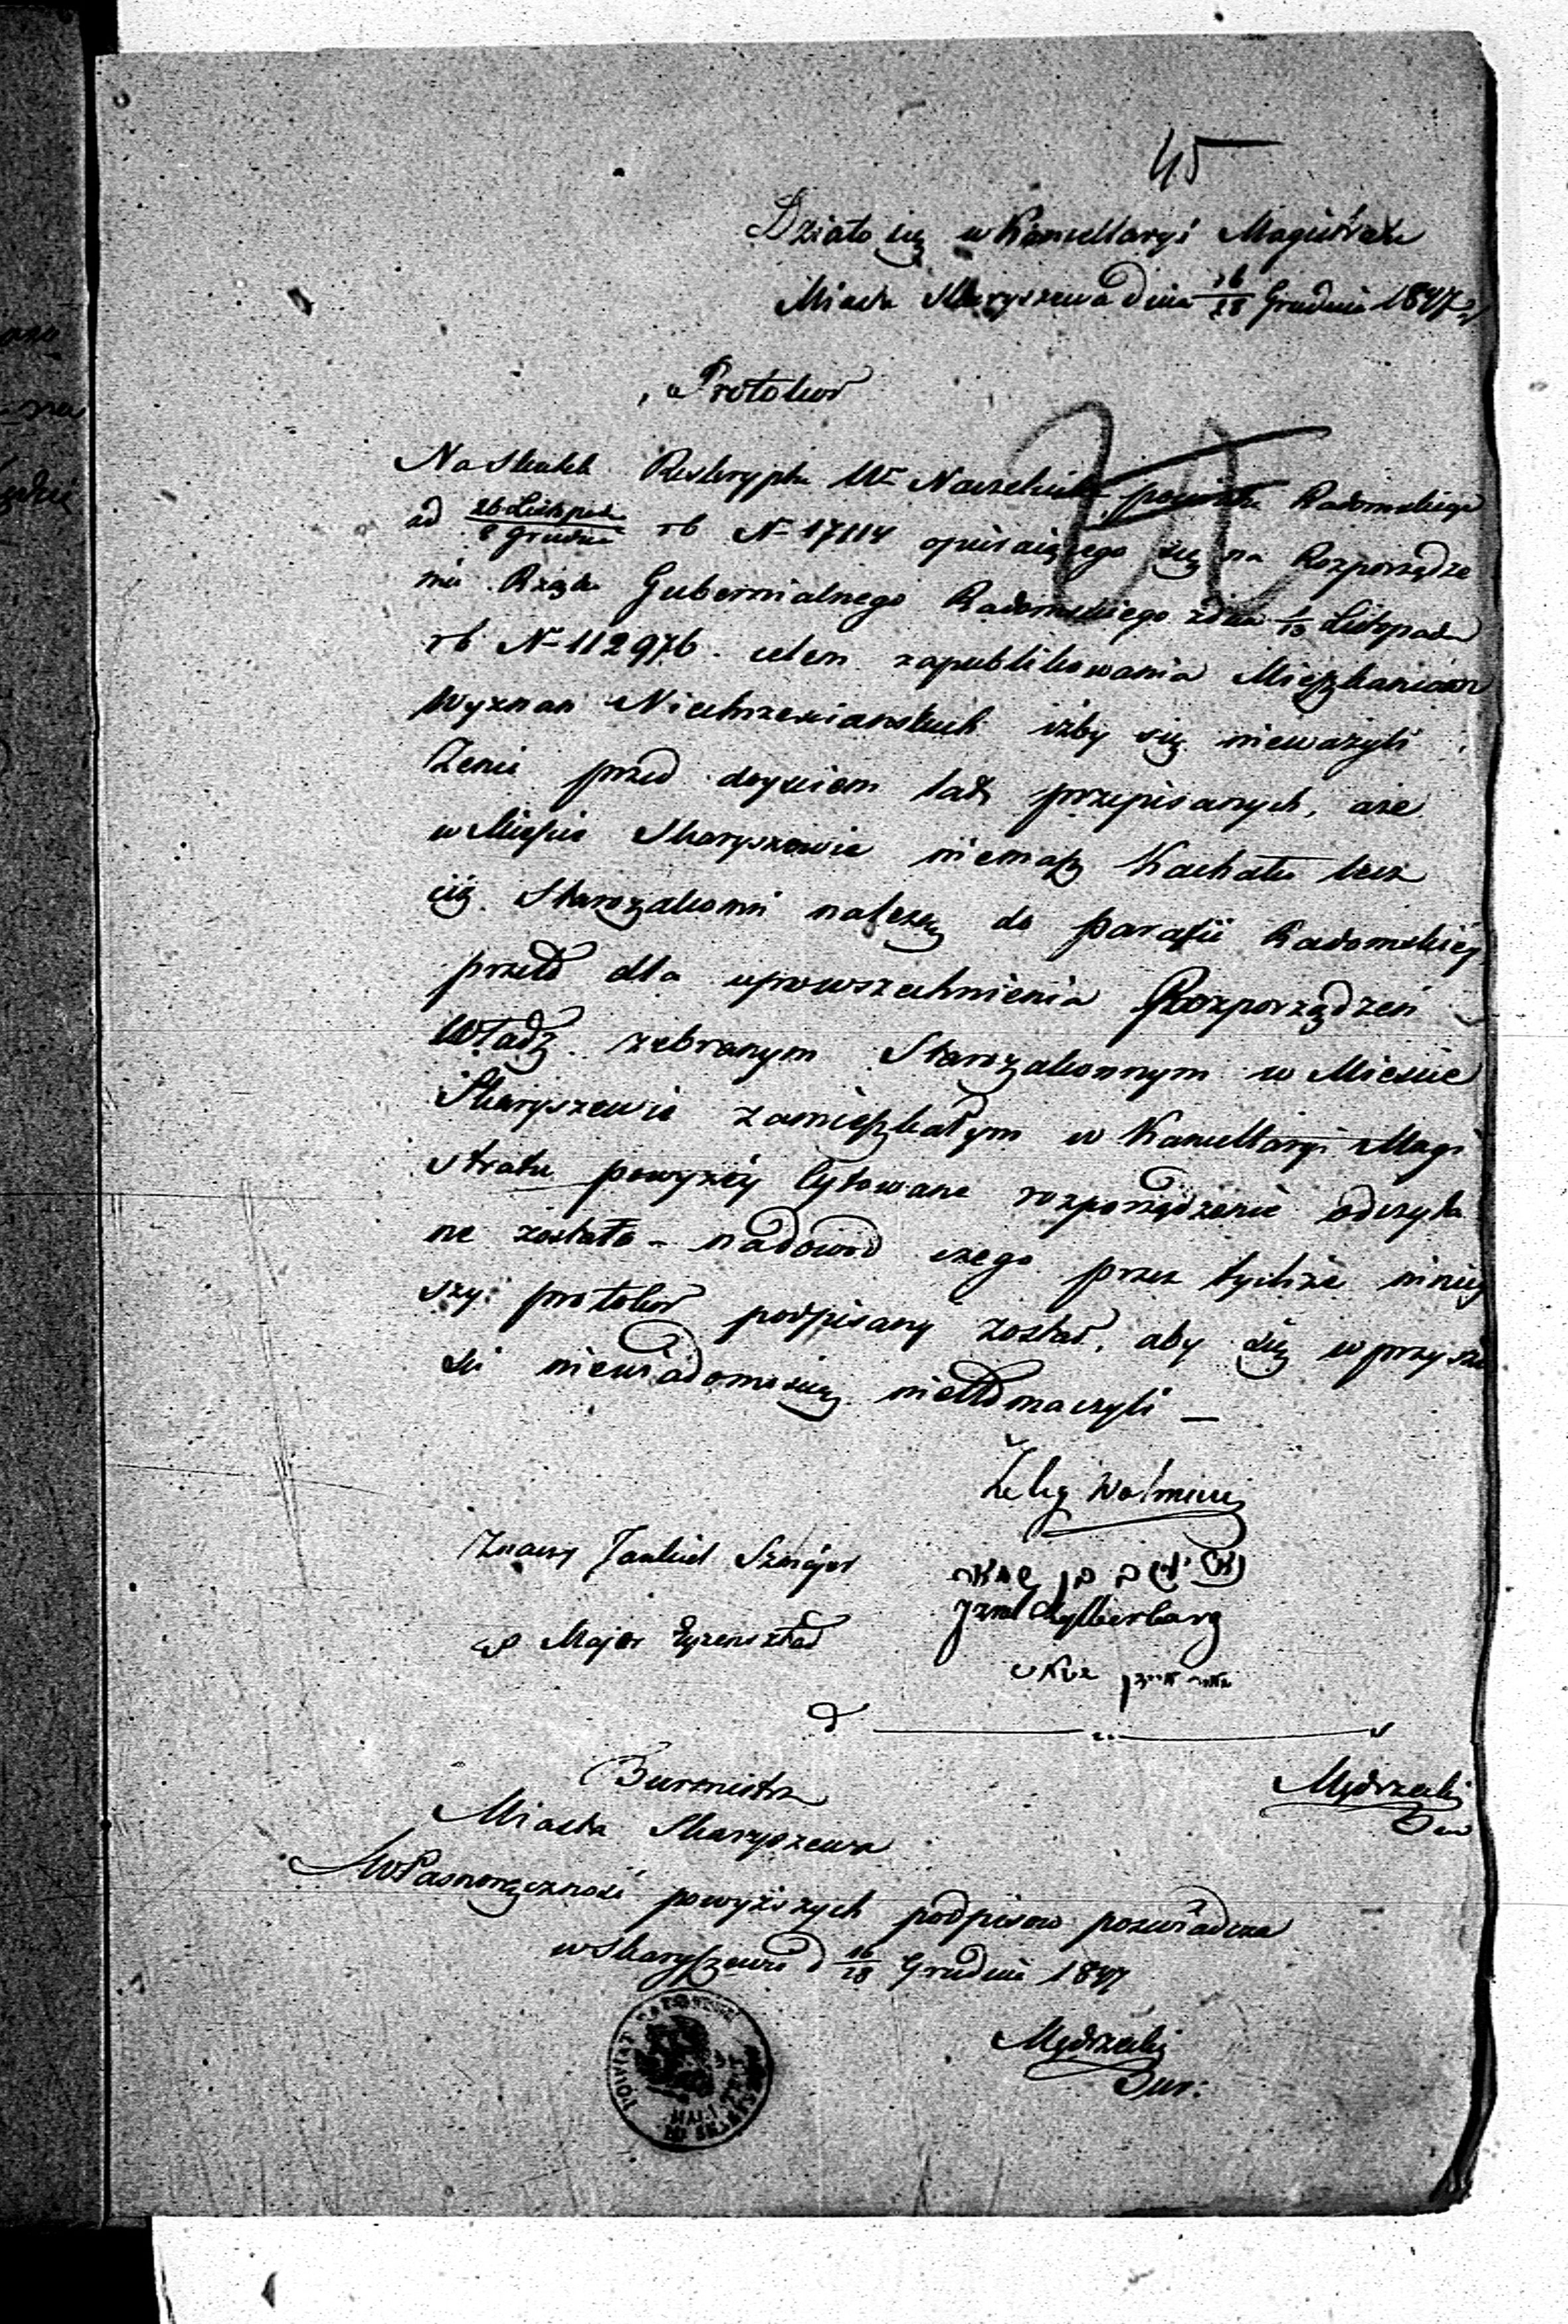 45
Działo się w Kancellaryi Magistratu
Miasta Skaryszewa dnia 16/28 Grudnia 1847 r
Protokuł
Na Skutek Reskryptu W Naczelnika powiatu Radomskiego
od 26 Listopada/8 Grudnia rb N 17114 opieraiącego się na Rozporządze
niu Rządu Gubernialnego Radomskiego zdnia 1/13 Listopada
rb N 112976 celem zapublikowania Mieszkańcom
Wyznań Niechrześcianskich iżby się nieważyli
Żenić przed dojściem lat przepisanych, a że
w Mieście Skaryszewie niemasz Kachału lecz
ciż Starozakonni należą do parafii Radomskiej
przeto dla upowszechnienia Rozporządzeń
Władz zebranym Starozakonnym w Mieście
Skaryszewie zamieszkałym w Kancellaryi Magi
stratu powyżéy Cytowane rozporządzenie odczyta
ne zostało – nadowód czego przez tychże niniey
szy protokuł podpisany został, aby się w przyszło
ści niewiadomością nietłomaczyli –
Zelig Wolmicz
Znaczy Jankiel Sznajer
Izrael Cukierberg
Majer Eyzensztad
Burmistrz
Miasta Skaryszewa
Mędrzecki
Własnoręczność powyższych podpisow poświadcza
w Skaryszewie d 16/28 Grudnia 1847
Mędrzecki
Bur:
POWIAT RADOMSKI